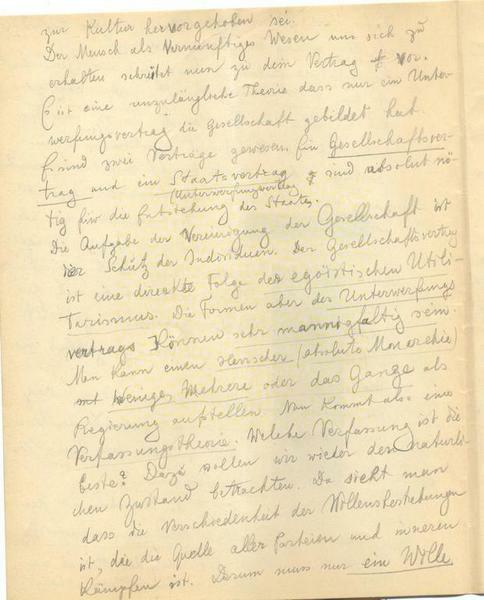 zur Kultur hervorgehoben sei.
Der Mensch als Vernünftiges Wesen uns sich zu
erhalten schreitet nun zu dem Vertrag vor.
Es ist eine unzulängliche Theorie dass nur ein Unter-
werfungsvertrag die Gesellschaft gebildet hat
Es sind zwei Verträge gewesen. Ein Gesellschaftsver-
trag und ein Staatsvertrag sind absolut nö-
(Unterwerfungsvertrag
tig für die Entstehung des Staates.
Die Aufgabe der Vereinigung der Gesellschaft ist
der Schutz der Individuen. Der Gesellschaftsvertrag
ist eine direkte Folge des egoistischen Utili-
Tarismus. Die Formen aber des Unterwerfungs
vertrags Können sehr mannigfaltig sein.
Man Kann einen Herrscher (absolute Monarchie)
mit Weniges Mehrere oder das Ganze als
Regierung aufstellen. Nun Kommt also eine
Verfassungstheorie. Welche Verfassung ist die
beste? Dazu wollen wir wieder den naturli-
chen Zustand betrachten. Da sieht man
dass die Verschiedenheit der Willensbestrebungen
ist, die die Quelle aller Parteien und inneren
Kämpfen ist. Darum muss nur ein Wille